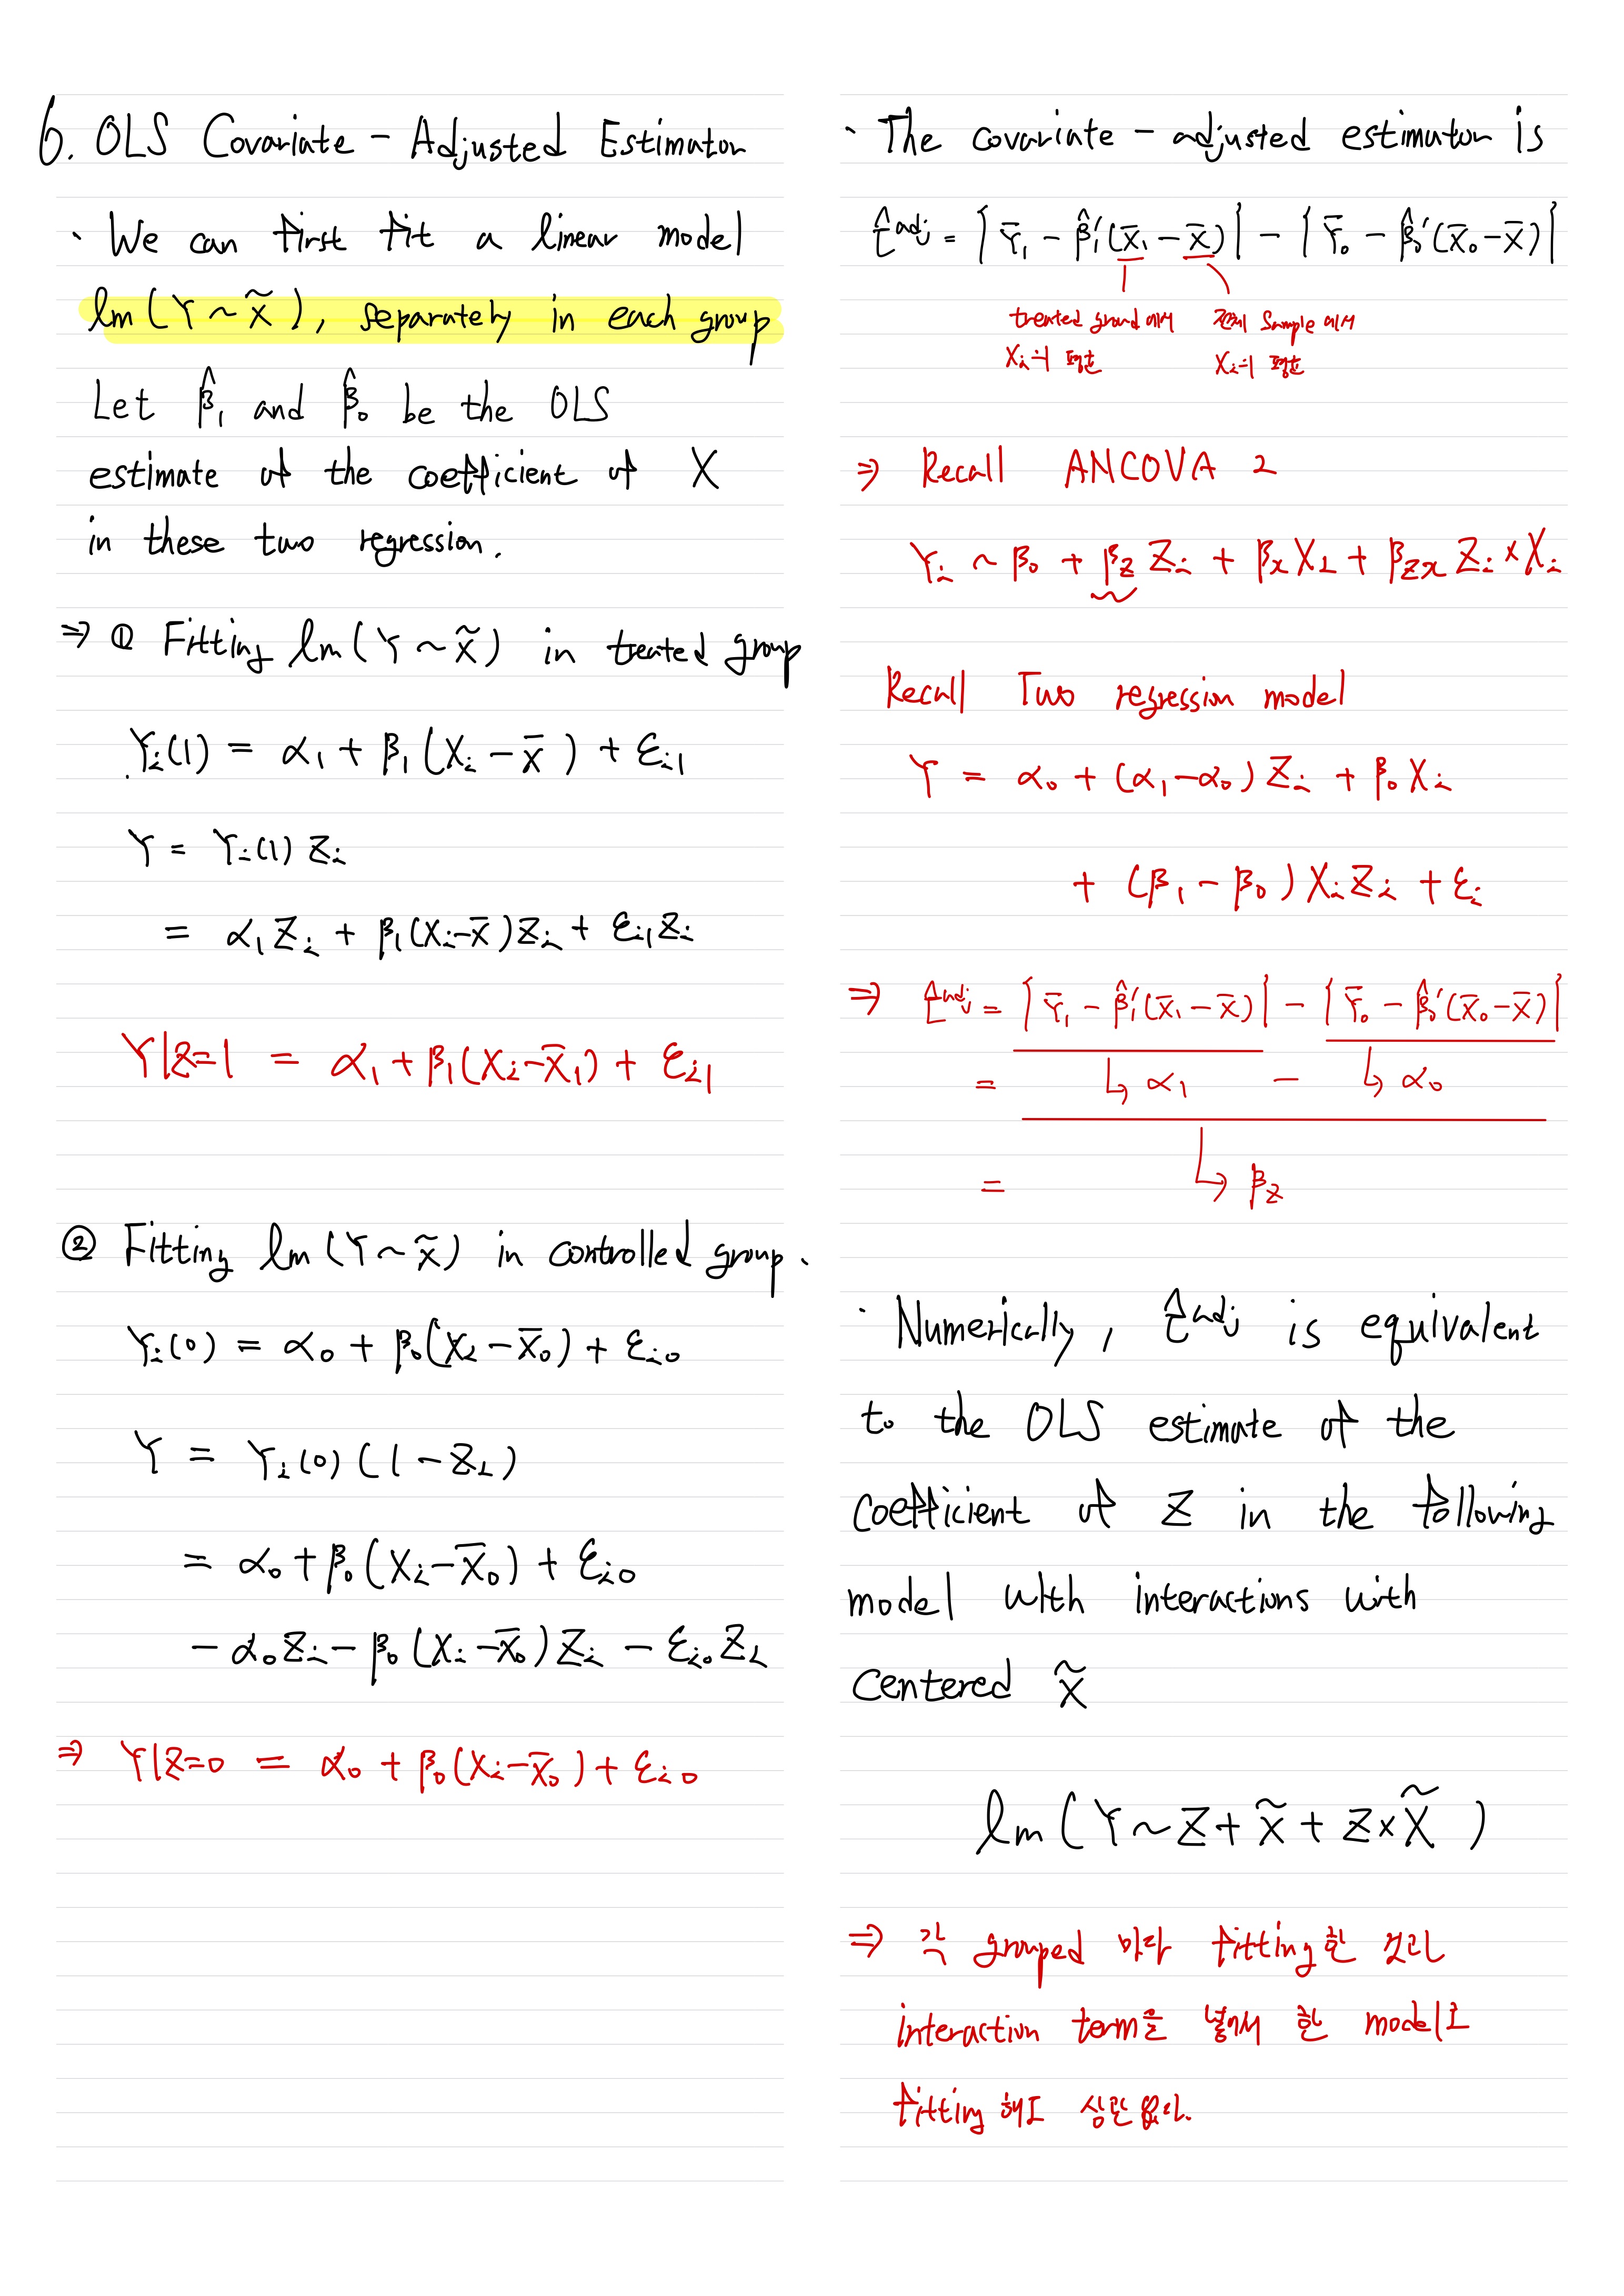 6. OLS Covariate - Adjusted Estimator
· We can first fit a linear model
lm(Y ~ X̃), separately in each group
Let β̂₁ and β̂₀ be the OLS
estimate of the coefficient of X
in these two regression.
⇒ ① Fitting lm(Y ~ X̃) in treated group
Yᵢ(1) = α₁ + β₁(Xᵢ - X̄) + εᵢ₁
Y = Yᵢ(1) Zᵢ
= α₁Zᵢ + β₁(Xᵢ - X̄)Zᵢ + εᵢ₁Zᵢ
Y|Z=1 = α₁ + β₁(Xᵢ - X̄₁) + εᵢ₁
② Fitting lm(Y ~ X̃) in controlled group.
Yᵢ(0) = α₀ + β₀(Xᵢ - X̄₀) + εᵢ₀
Y = Yᵢ(0) (1 - Zᵢ)
= α₀ + β₀(Xᵢ - X̄₀) + εᵢ₀
- α₀Zᵢ - β₀(Xᵢ - X̄₀)Zᵢ - εᵢ₀Zᵢ
⇒ Y|Z=0 = α₀ + β₀(Xᵢ - X̄₀) + εᵢ₀
· The covariate - adjusted estimator is
τ̂ᵃᵈʲ = [Ȳ₁ - β̂₁'(X̄₁ - X̄)] - [Ȳ₀ - β̂₀'(X̄₀ - X̄)]
treated ground에서 전체 Sample에서
Xᵢ의 평균 Xᵢ의 평균
⇒ Recall ANCOVA 2
Yᵢ ~ β₀ + β_Z Zᵢ + βₓ Xᵢ + β_Zₓ Zᵢ × Xᵢ
Recall Two regression model
Y = α₀ + (α₁ - α₀) Zᵢ + β₀ Xᵢ
+ (β₁ - β₀) XᵢZᵢ + εᵢ
⇒ τ̂ᵃᵈʲ = [Ȳ₁ - β̂₁'(X̄₁ - X̄)] - [Ȳ₀ - β̂₀'(X̄₀ - X̄)]
= ↳ α₁ - ↳ α₀
= ↳ β_Z
· Numerically, τ̂ᵃᵈʲ is equivalent
to the OLS estimate of the
coefficient of Z in the following
model with interactions with
centered X̃
lm(Y ~ Z + X̃ + Z × X̃)
⇒ 각 grouped 마다 fitting한 것과
interaction term을 넣어서 한 model로
fitting 해도 상관 없다.